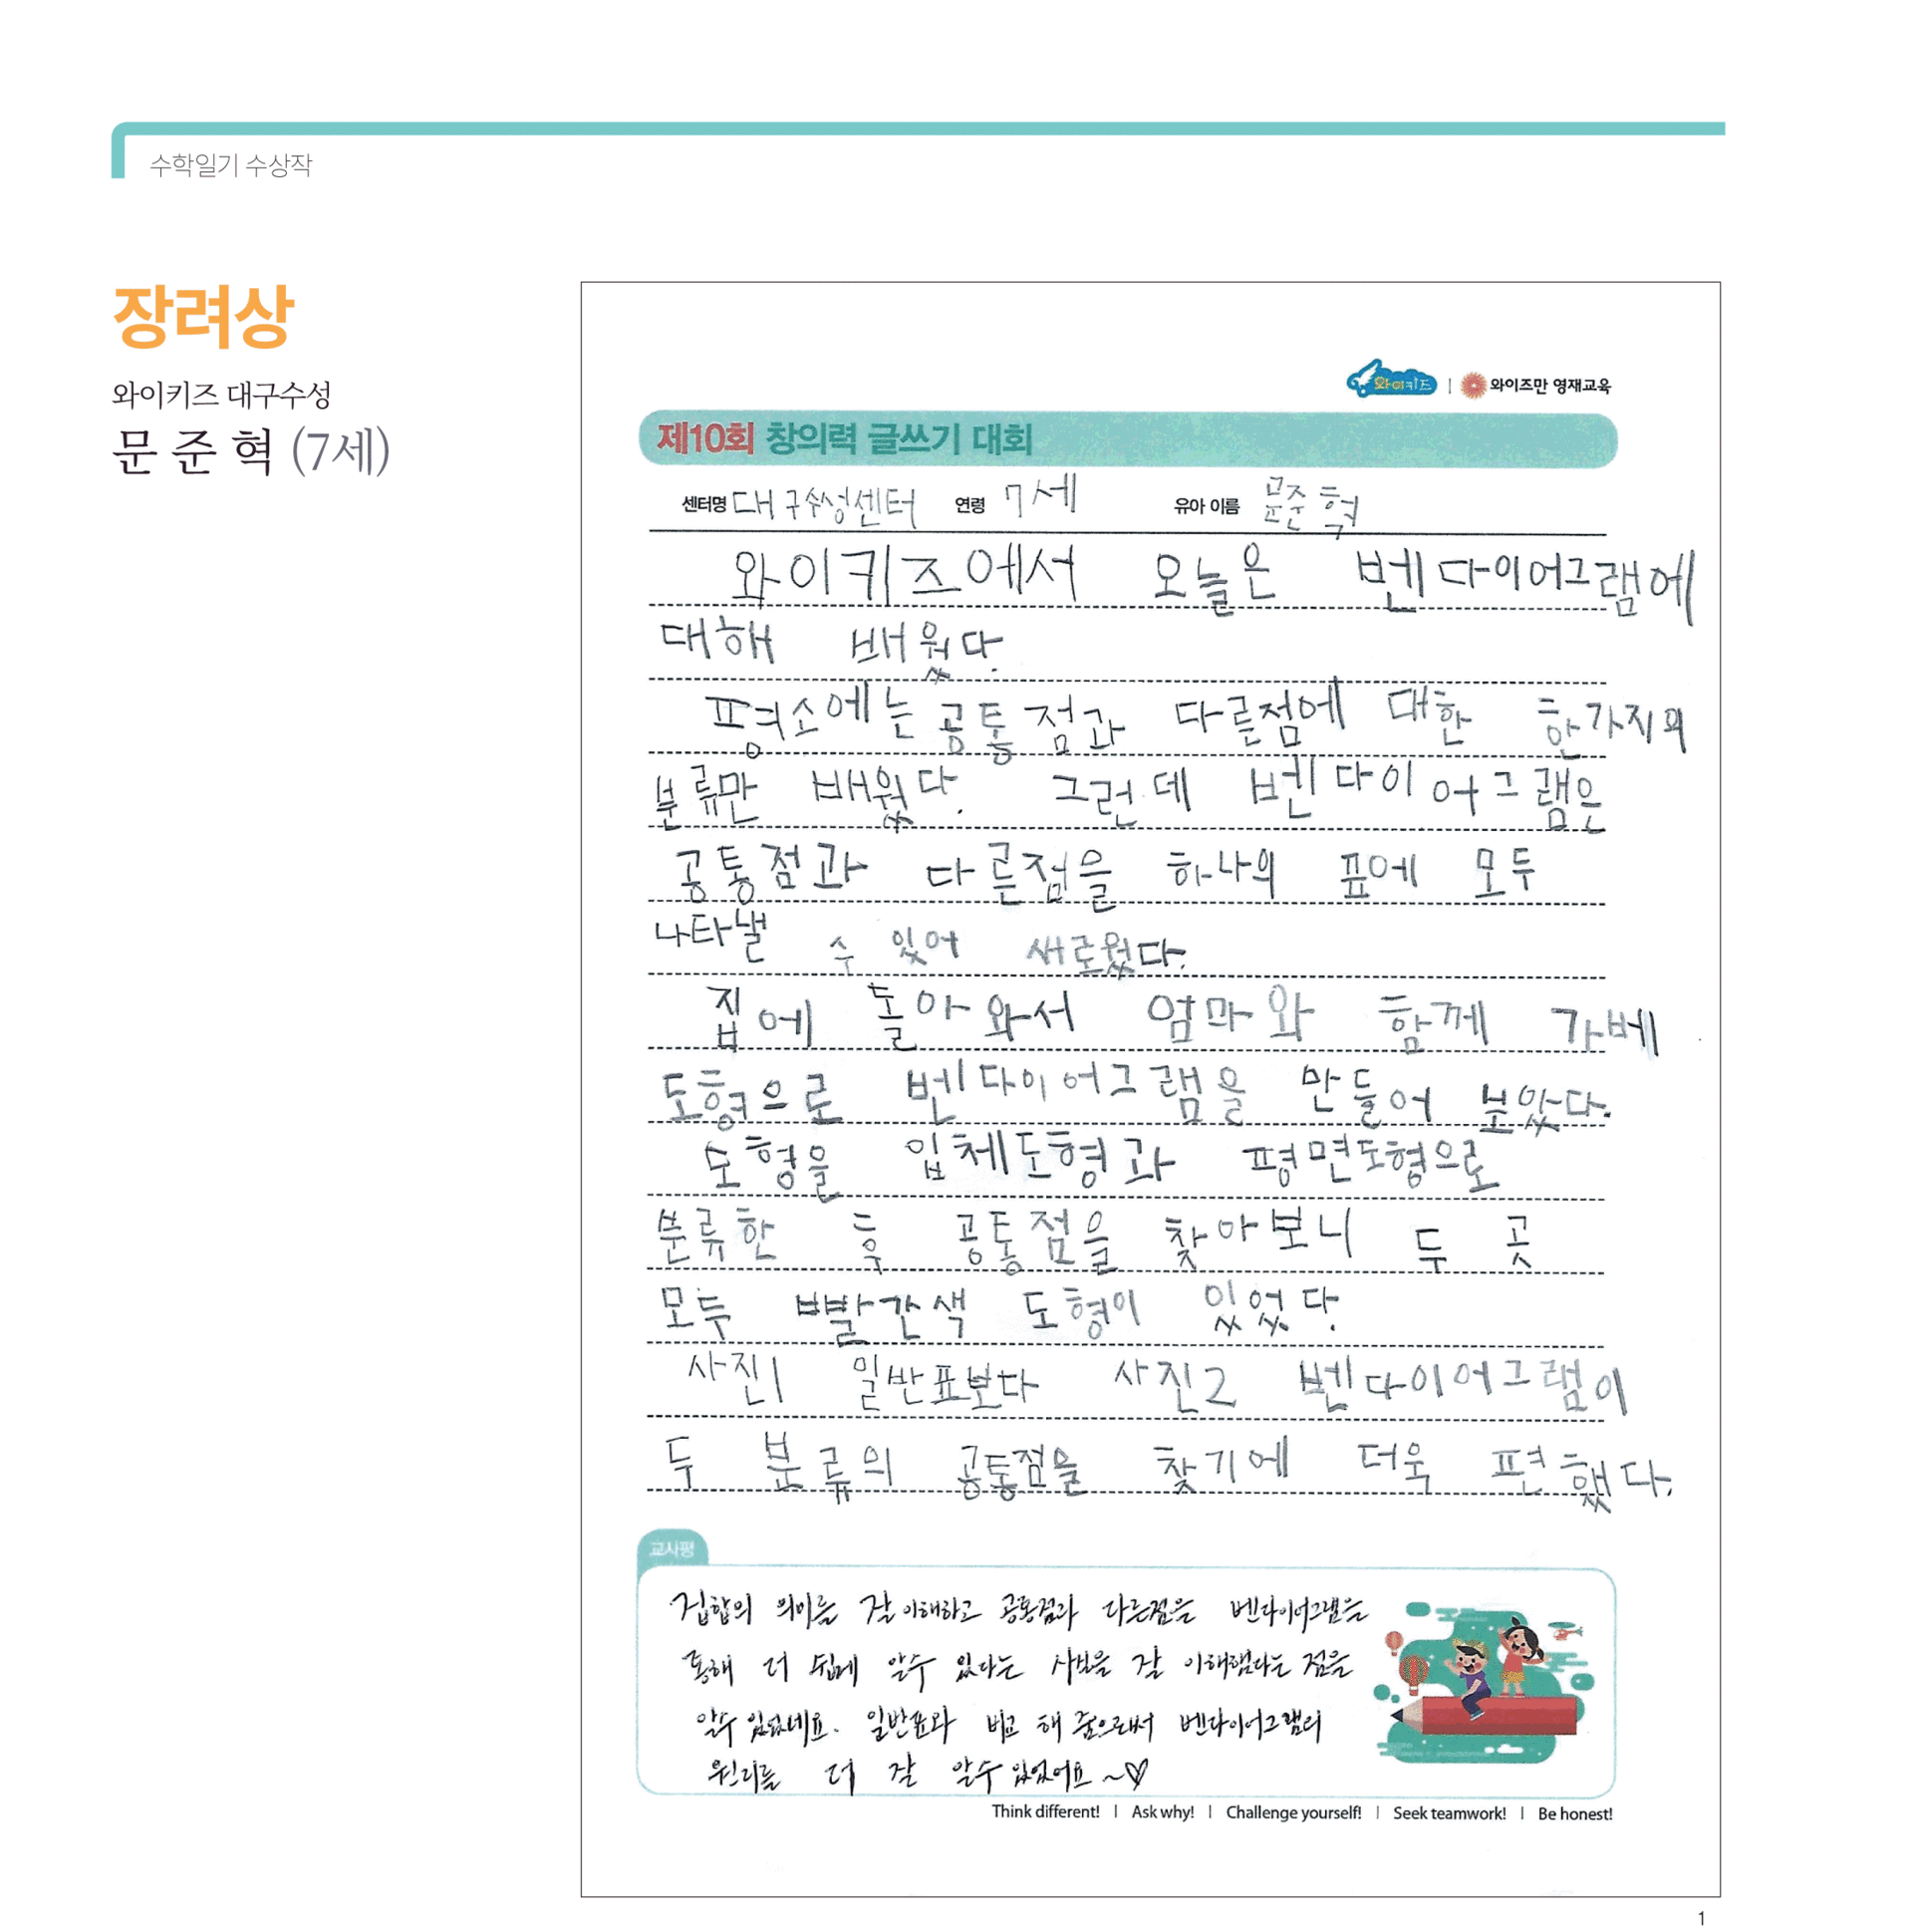 수학일기 수상작
장려상
와이키즈 대구수성
문준혁 (7세)
와이키즈 | 와이즈만 영재교육
제10회 창의력 글쓰기 대회
센터명 대구수성센터 연령 7세 유아 이름 문준혁
와이키즈에서 오늘은 벤다이어그램에
대해 배웠다.
평소에는 공통점과 다른점에 대한 한가지의
분류만 배웠다. 그런데 벤다이어그램은
공통점과 다른점을 하나의 표에 모두
나타낼 수 있어 새로웠다.
집에 돌아와서 엄마와 함께 가베
도형으로 벤다이어그램을 만들어 보았다.
도형을 입체도형과 평면도형으로
분류한 후 공통점을 찾아보니 두 곳
모두 빨간색 도형이 있었다.
사진1 일반표보다 사진2 벤다이어그램이
두 분류의 공통점을 찾기에 더욱 편했다.
교사평
집합의 의미를 잘 이해하고 공통점과 다른점을 벤다이어그램을
통해 더 쉽게 알수 있다는 사실을 잘 이해했다는 점을
알수 있었네요. 일반표와 비교 해 줌으로써 벤다이어그램의
원리를 더 잘 알수 있었어요~♡
Think different! | Ask why! | Challenge yourself! | Seek teamwork! | Be honest!
1